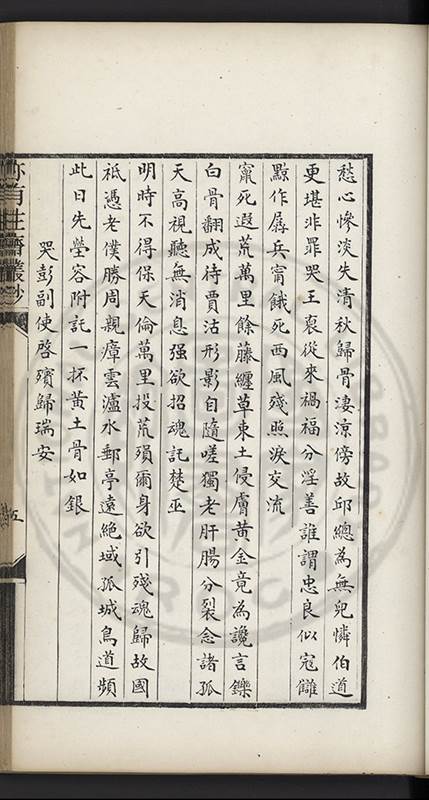 愁心慘淡失清秋歸骨淒涼傍故邱總為無兒憐伯道
更堪非罪哭王裒從來禍福分淫善誰謂忠良似寇讎
黥作孱兵甯餓死西風殘照淚交流
竄死遐荒萬里餘藤纏草束土侵膚黃金竟為讒言鑠
白骨翻成待賈沽形影自隨嗟獨老肝腸分裂念諸孤
天高視聽無消息强欲招魂託楚巫
明時不得保天倫萬里投荒殞爾身欲引殘魂歸故國
祇憑老僕勝周親瘴雲瀘水郵亭遠絕域孤城鳥道頻
此日先塋容附託一抔黃土骨如銀
哭彭副使啓殯歸瑞安
亦有生齋叢鈔
五